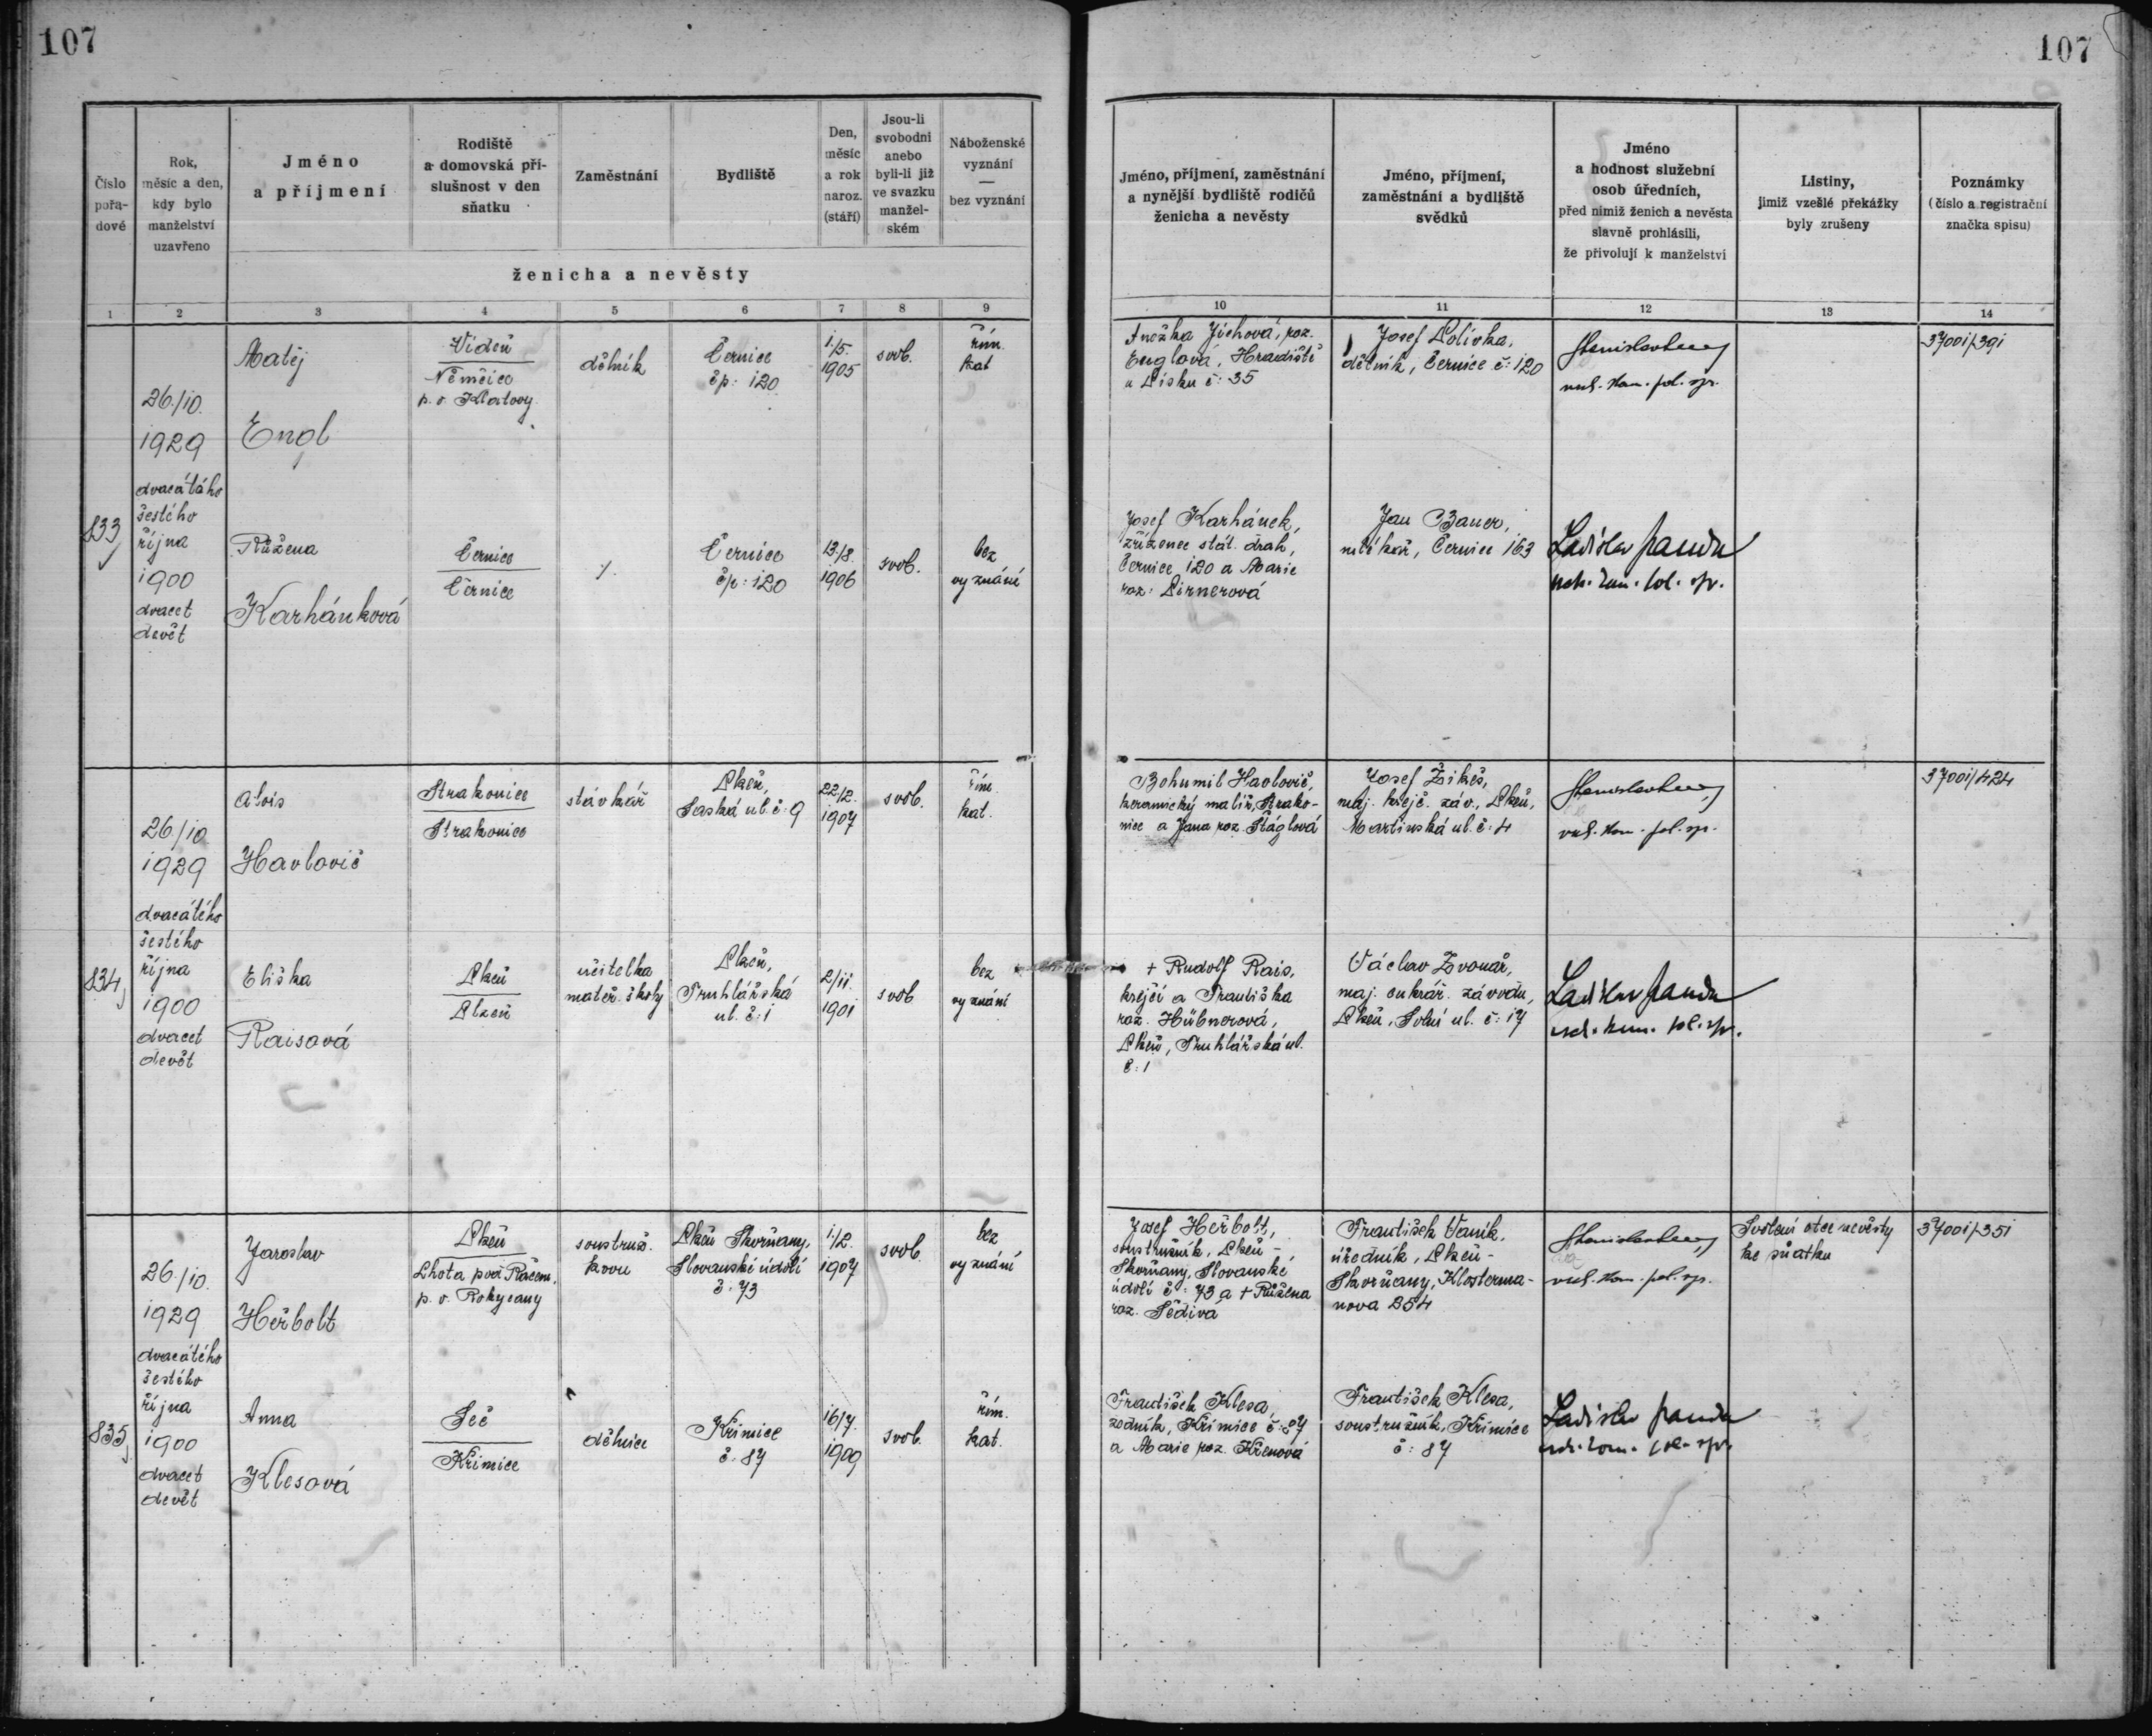 107
107
Číslo
pořa-
dové
Rok,
měsíc a den,
kdy bylo
manželství
uzavřeno
Jméno
a příjmení
Rodiště
a domovská pří-
slušnost v den
sňatku
Zaměstnání
Bydliště
Den,
měsíc
a rok
naroz.
(stáří)
Jsou-li
svobodni
anebo
byli-li již
ve svazku
manžel-
ském
Náboženské
vyznání
—
bez vyznání
ženicha a nevěsty
Jméno, příjmení, zaměstnání
a nynější bydliště rodičů
ženicha a nevěsty
Jméno, příjmení,
zaměstnání a bydliště
svědků
Jméno
a hodnost služební
osob úředních,
před nimiž ženich a nevěsta
slavně prohlásili,
že přivolují k manželství
Listiny,
jimiž vzešlé překážky
byly zrušeny
Poznámky
(číslo a registrační
značka spisu)
1 2 3 4 5 6 7 8 9 10 11 12 13 14
833
26./10.
1929
dvacátáho
šestého
října
1900
dvacet
devět
Matěj
Engl
Vídeň
Němčice
p. o. Klatovy
dělník
Černice
čp: 120
1./5.
1905
svob.
řím.
kat
Anežka Jíchová, roz.
Englova, Hradiště
u Písku č: 35
Josef Polívka,
dělník, Černice č: 120
37001/391
Růžena
Karhánková
Černice
Černice
/.
Černice
čp: 120
13./8.
1906
svob.
bez
vyznání
Josef Karhánek,
zřízenec stát. drah,
Černice 120 a Marie
roz: Pirnerová
Jan Bauer,
mlékař, Černice 163
Ladislav
834
26./10
1929
dvacátého
šestého
října
1900
dvacet
devět
Alois
Havlovič
Strakonice
Strakonice
stávkář
Plzeň,
Saská ul. č: 9
22./2.
1907
svob.
řím.
kat.
Bohumil Havlovič,
keramický malíř, Strako-
nice a Jana roz. Štáglová
Josef Žikeš,
maj. krejč. záv., Plzeň,
Martinská ul. č: 4
37001/424
Eliška
Raisová
Plzeň
Plzeň
učitelka
mateř. školy
Plzeň,
Truhlářská
ul. č: 1
2/11.
1901
svob
bez
vyznání
+ Rudolf Rais,
krejčí a Františka
roz. Hübnerová,
Plzeň, Truhlářská ul.
č: 1
Václav Zvonař,
maj. cukrář. závodu,
Plzeň, Solní ul. č: 17
Ladislav
835
26./10.
1929
dvacátého
šestého
října
1900
dvacet
devět
Jaroslav
Heřbolt
Plzeň
Lhota pod Račem,
p. o. Rokycany
soustruž.
kovu
Plzeň Skvrňany,
Slovanské údolí
č: 73
1./2.
1907
svob.
bez
vyznání
Josef Heřbolt,
soustružník, Plzeň -
Skvrňany, Slovanské
údolí č: 73 a + Růžena
roz. Šedivá
František Vaník,
úředník, Plzeň -
Skvrňany, Klosterma-
nova 254
Svolení otce nevěsty
ke sňatku
37001/351
Anna
Klesová
Seč
Křimice
dělnice
Křimice
č: 87
16/7.
1909
svob.
řím.
kat.
František Klesa,
zedník, Křimice č: 87
a Marie roz. Křenová
František Klesa,
soustružník, Křimice
č: 87
Ladislav